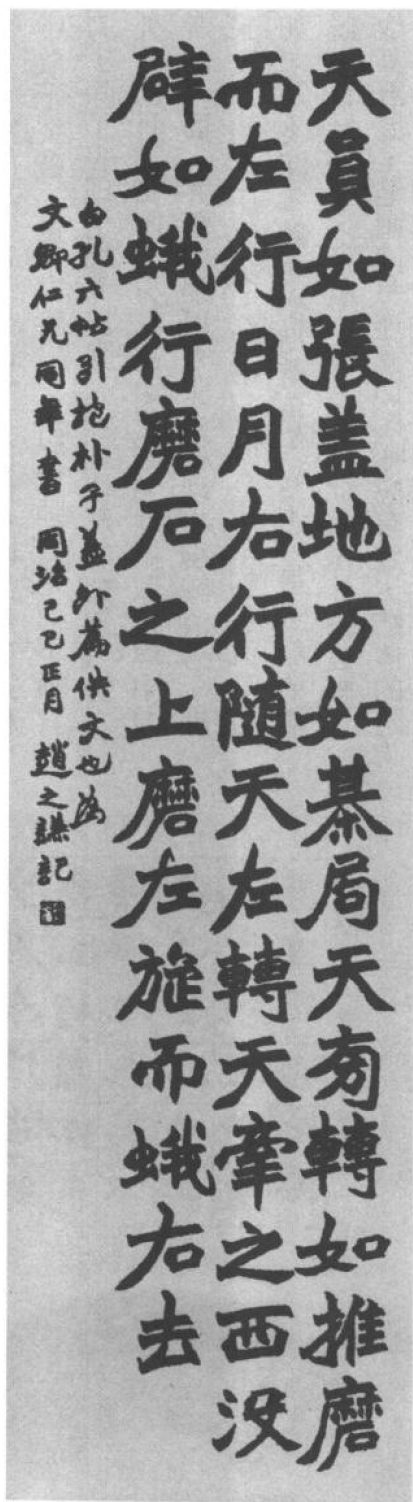 天員如張盖地方如棊局天旁轉如推磨
而左行日月右行隨天左轉天牽之西没
辟如蛾行磨石之上磨左旋而蛾右去
白孔六帖引抱朴子蓋外篇佚文也為
文卿仁兄同年書 同治己巳正月 趙之謙記